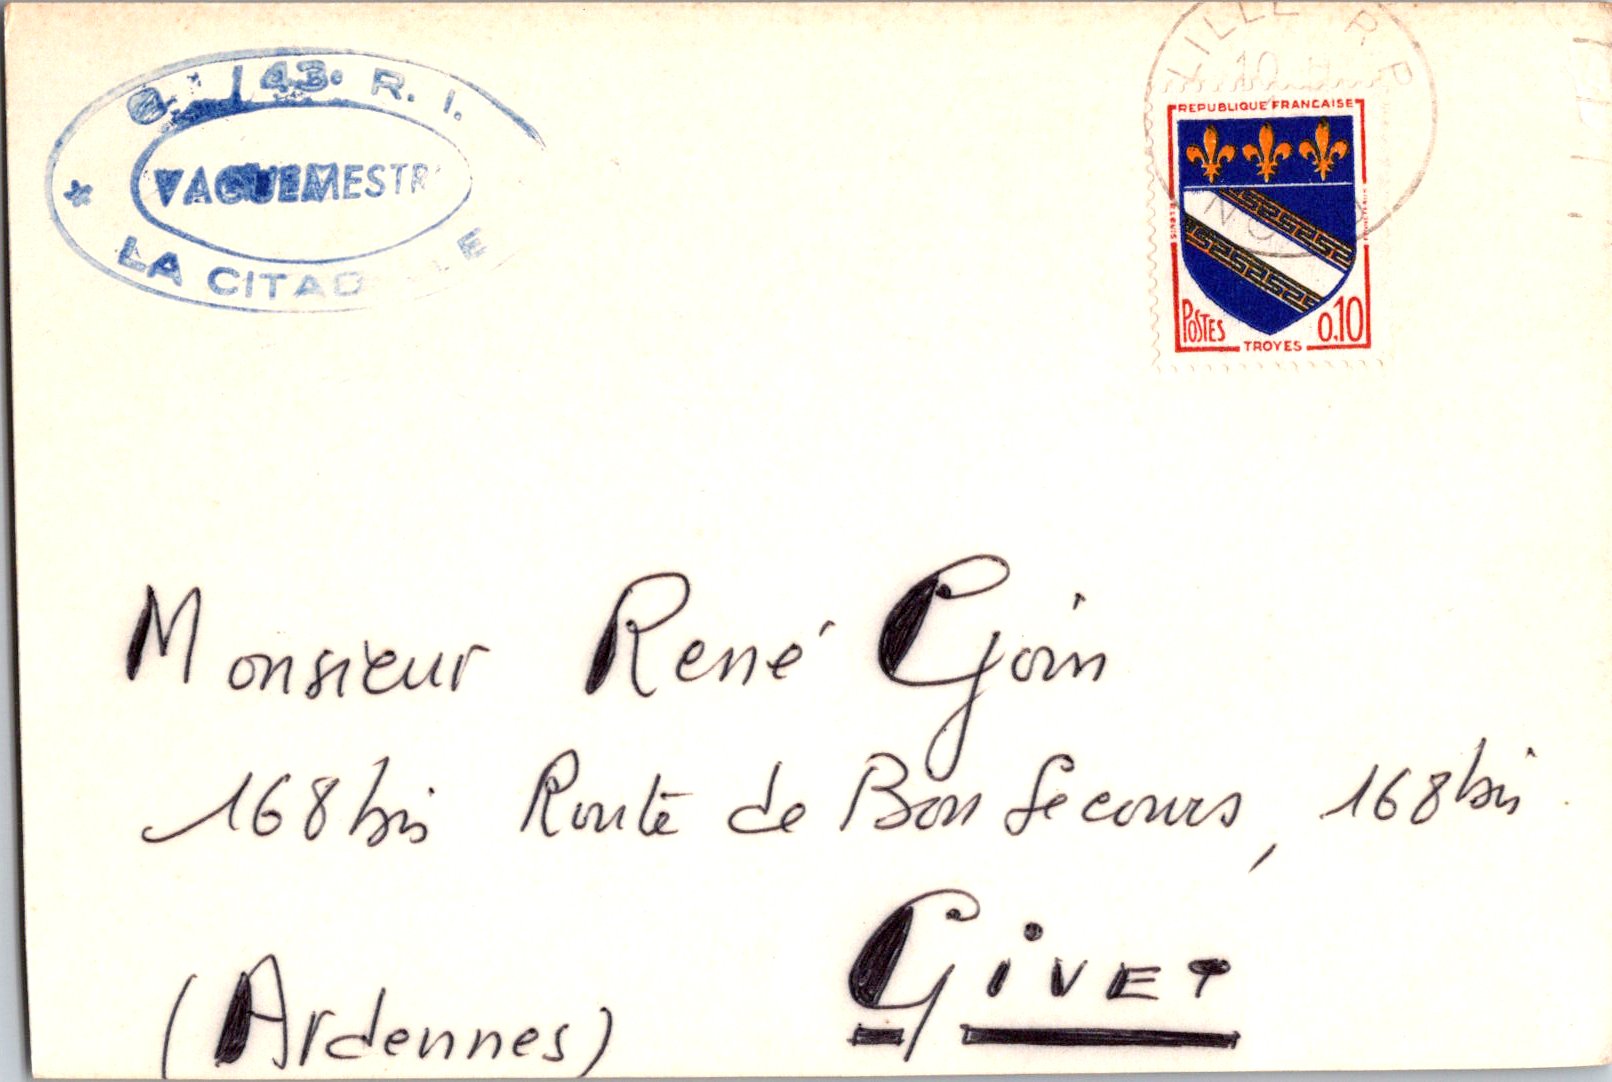 43e R. I.
VAGUEMESTR
LA CITAD E
LILLE R P
10
REPUBLIQUE FRANCAISE
POSTES 0,10
TROYES
Monsieur René Goin
168 bis Route de Bon Secours, 168 bis
GiVET
(Ardennes)